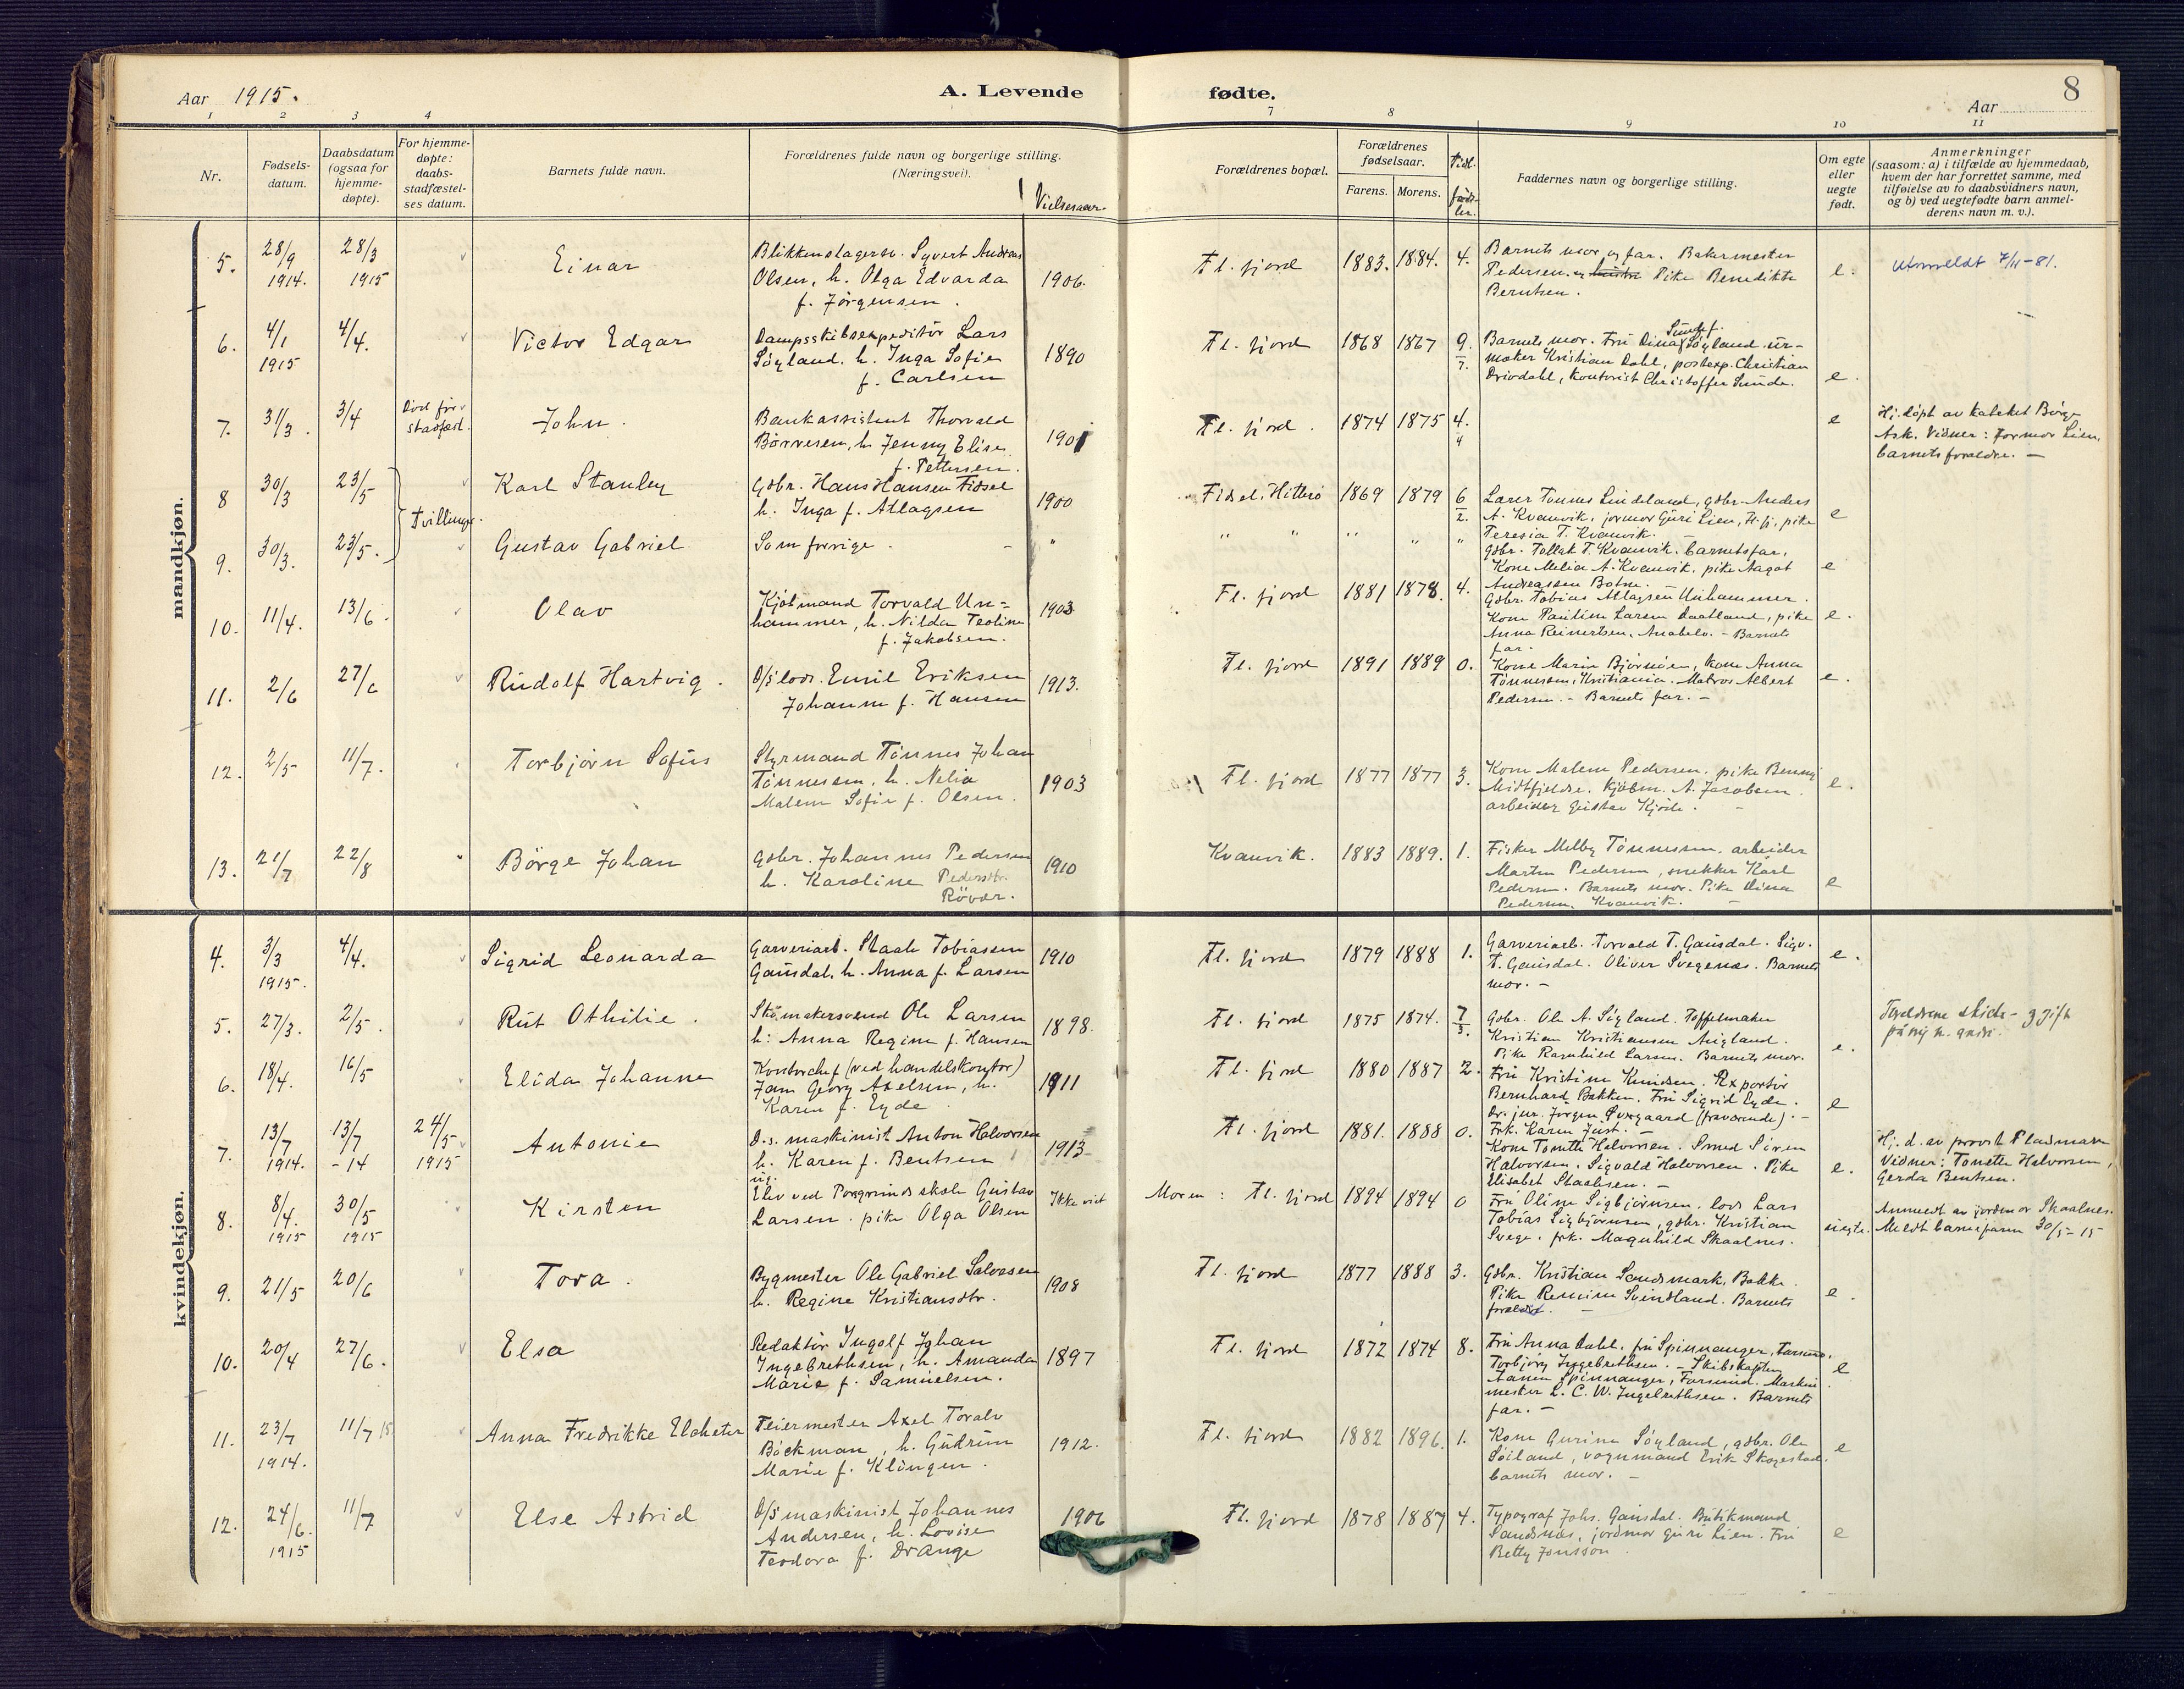 Aar 1915.
A. Levende fødte.
Aar
8
1 2 3 4 7 8 9 10 11
Nr.
Fødsels-
datum.
Daabsdatum
(ogsaa for
hjemme-
døpte).
For hjemme-
døpte:
daabs-
stadfæstel-
ses datum.
Barnets fulde navn.
Forældrenes fulde navn og borgerlige stilling.
(Næringsvei).
Vielsesaar.
Forældrenes bopæl.
Forældrenes
fødselsaar.
Farens. Morens.
Tidl.
føds-
ler.
Faddernes navn og borgerlige stilling.
Om egte
eller
uegte
født.
Anmerkninger
(saasom: a) i tilfælde av hjemmedaab,
hvem der har forrettet samme, med
tilføielse av to daabsvidners navn,
og b) ved uegtefødte barn anmel-
derens navn m. v.).
mandkjøn.
5. 28/9 1914. 28/3 1915 Einar
Blikkenslagersv. Syvert Andreas
Olsen, h. Olga Edvarda
f. Jörgensen. 1906.
Fl. fjord 1883. 1884. 4.
Barnets mor og far. Bakermester
Pedersen og hustru Pike Benedikte
Berntsen. e.
Utmeldt 7/11-81.
6. 4/1 1915 4/4. Victor Edgar
Dampsskibsexpeditör Lars
Söyland. h. Inga Sofie
f. Carlsen 1890
Fl. fjord 1868 1867 9/7.
Barnets mor. Fru Dina Sunde f. Söyland ur-
maker Kristian Dahl, postexp. Christian
Drivdahl, kontorist Christoffer Sunde. e.
7. 31/3. 3/4 Död för
stadfæst. John.
Bankassistent Thorvald
Börresen, h. Jenny Elise
f. Pettersen. 1901
Fl. fjord. 1874 1875 4/4 e
Hj. döpt av kateket Börge
Ask. Vidner: Jormor Lien,
barnets foreldre. —
8 30/3 23/5 Tvillinger. Karl Stanley
Gdbr. Hans Hansen Fidsel
h. Inga f. Atlagsen 1900
Fidsel, Hitterö 1869 1879 6/2.
Lærer Tønnes Lindeland, gdbr. Anders
A. Kvanvik, jormor Guri Lien, Fl. fj., pike
Teresia T. Kvanvik. e
9. 30/3. 23/5. Gustav Gabriel
Som forrige. — "
" " " " "
gdbr. Tollak T. Kvanvik. Barnets far.
Kone Melia A. Kvanvik, pike Aagot
Andreassen Botne. e
10. 11/4. 13/6. Olav
Kjöbmand Torvald Un=
hammer, h. Nilda Teoline
f. Jakobsen. 1903
Fl. fjord 1881 1878. 4.
Gdbr. Tobias Atlagsen Unhammer.
Kone Pauline Larsen Daatland, pike
Anna Reinertsen, Anabelv. - Barnets
far. e.
11. 2/6 27/6 Rudolf Hartvig.
D/s lods. Emil Eriksen
Johanne f. Hansen 1913.
Fl. fjord 1891 1889 0.
Kone Marie Björnöen, kone Anna
Tönnesen, Kristiania. Matros Albert
Pedersen. - Barnets far. - e.
12. 2/5 11/7. Torbjörn Sofus
Styrmand Tönnes Johan
Tönnesen, h. Nelia
Malene Sofie f. Olsen. 1903
Fl. fjord 1877 1877 3.
Kone Malene Pedersen, pike Benny
Midtfjeldre. Kjöbm. A. Jacobsen.
arbeider Gustav Kjörle. e.
13. 21/7 22/8 Börge Johan
gdbr. Johannes Pedersen
h. Karoline Pedersdtr.
Rövær. 1910
Kvanvik. 1883 1889. 1.
Fisker Melby Tönnesen, arbeider
Martin Pedersen, snekker Karl
Pedersen. Barnets mor. Pike Dina
Pedersen, Kvanvik. e
kvindekjøn.
4. 3/3 1915. 4/4. Sigrid Leonarda
Garveriarb. Staale Tobiassen
Gausdal, h. Anna f. Larsen 1910
Fl. fjord 1879 1888 1.
Garveriarb. Torvald T. Gausdal. Sigv.
T. Gausdal. Oliver Svegenes. Barnets
mor. - e.
5. 27/3. 2/5. Rut Othilie.
Skomakersvend Ole Larsen
h: Anna Regine f. Hansen 1898.
Fl. fjord 1875 1874. 7/3.
Gdbr. Ole A. Söyland. Töffelmaker
Kristian Kristiansen Augland.
Pike Ragnhild Larsen. Barnets mor. e.
6. 18/4. 16/5 Elida Johanne
Kontorchef (ved handelskontor)
Jam Georg Axelsen, h.
Karen f. Eyde 1911
Fl. fjord 1880 1887 2.
Fru Kristine Knudsen. Exportör
Bernhard Bakken. Fru Sigrid Eyde.
Dr. jur. Jörgen Övergaard (fraværende). -
Frk. Karen Just. - e
7. 13/7 1914. 13/7 -14 24/5 1915 Antonie
D.s. maskinist Anton Halvorsen
h. Karen f. Bentsen 1913
Fl. fjord 1881. 1888 0.
Kone Tonette Halvorsen. Smed Sören
Halvorsen. Sigvald Halvorsen. Pike
Elisabet Staalesen. - e.
Hj. d. av provst Pladsmann
Vidner: Tonette Halvorsen,
Gerda Bentsen.
8. 8/4. 1915 30/5 1915 Kirsten
ug.
Elev ved Porsgrunds skole Gustav
Larsen. pike Olga Olsen Ikke viet
Moren: Fl. fjord 1894 1894 0
Fru Oline Sigbjörnsen, lods Lars
Tobias Sigbjörnsen, gdbr. Kristian
Svege. frk. Magnhild Skaalnes. uegte.
Anmeldt av jordmor Skaalnes.
Meldt barnefaren 30/5-15
9. 21/5 20/6 Tora.
Bygmester Ole Gabriel Salvesen
h. Regine Kristiansdtr. 1908
Fl. fjord 1877 1888 3.
Gdbr. Kristian Sandsmark, Bakke.
Pike Remine Svindland. Barnets
forældre. - e.
10. 20/4 27/6. Elsa
Redaktör Ingolf Johan
Ingebrethsen, h. Amanda
Marie f. Samuelsen. 1897
Fl. fjord 1872 1874 8.
Fru Anna Dahl, fru Spinnanger, Farsund.
Torbjörg Ingebrethsen. - Skibskaptein
Aanen Spinnanger, Farsund. Maskin
mester L. C. W. Ingebrethsen. Barnets
far. - e
11. 23/7 1914. 11/7 15 Anna Fredrikke
Feiermester Axel Toralv
Böckman, h. Gudrun
Marie f. Klungen. 1912.
Fl. fjord 1882 1896. 1.
Kone Gurine Söyland, gdbr. Ole
Söiland, vognmand Erik Skogestad.
barnets mor. - e
12. 24/6. 1915 11/7 Else Astrid
D/s maskinist Johannes
Andersen, h. Lovise
Teodora f. Drange 1906
Fl. fjord 1878 1887 4.
Typograf Johs. Gausdal. Butikmand
Sandsnes, jordmor Guri Lien. Fru
Betty Jonsson. e